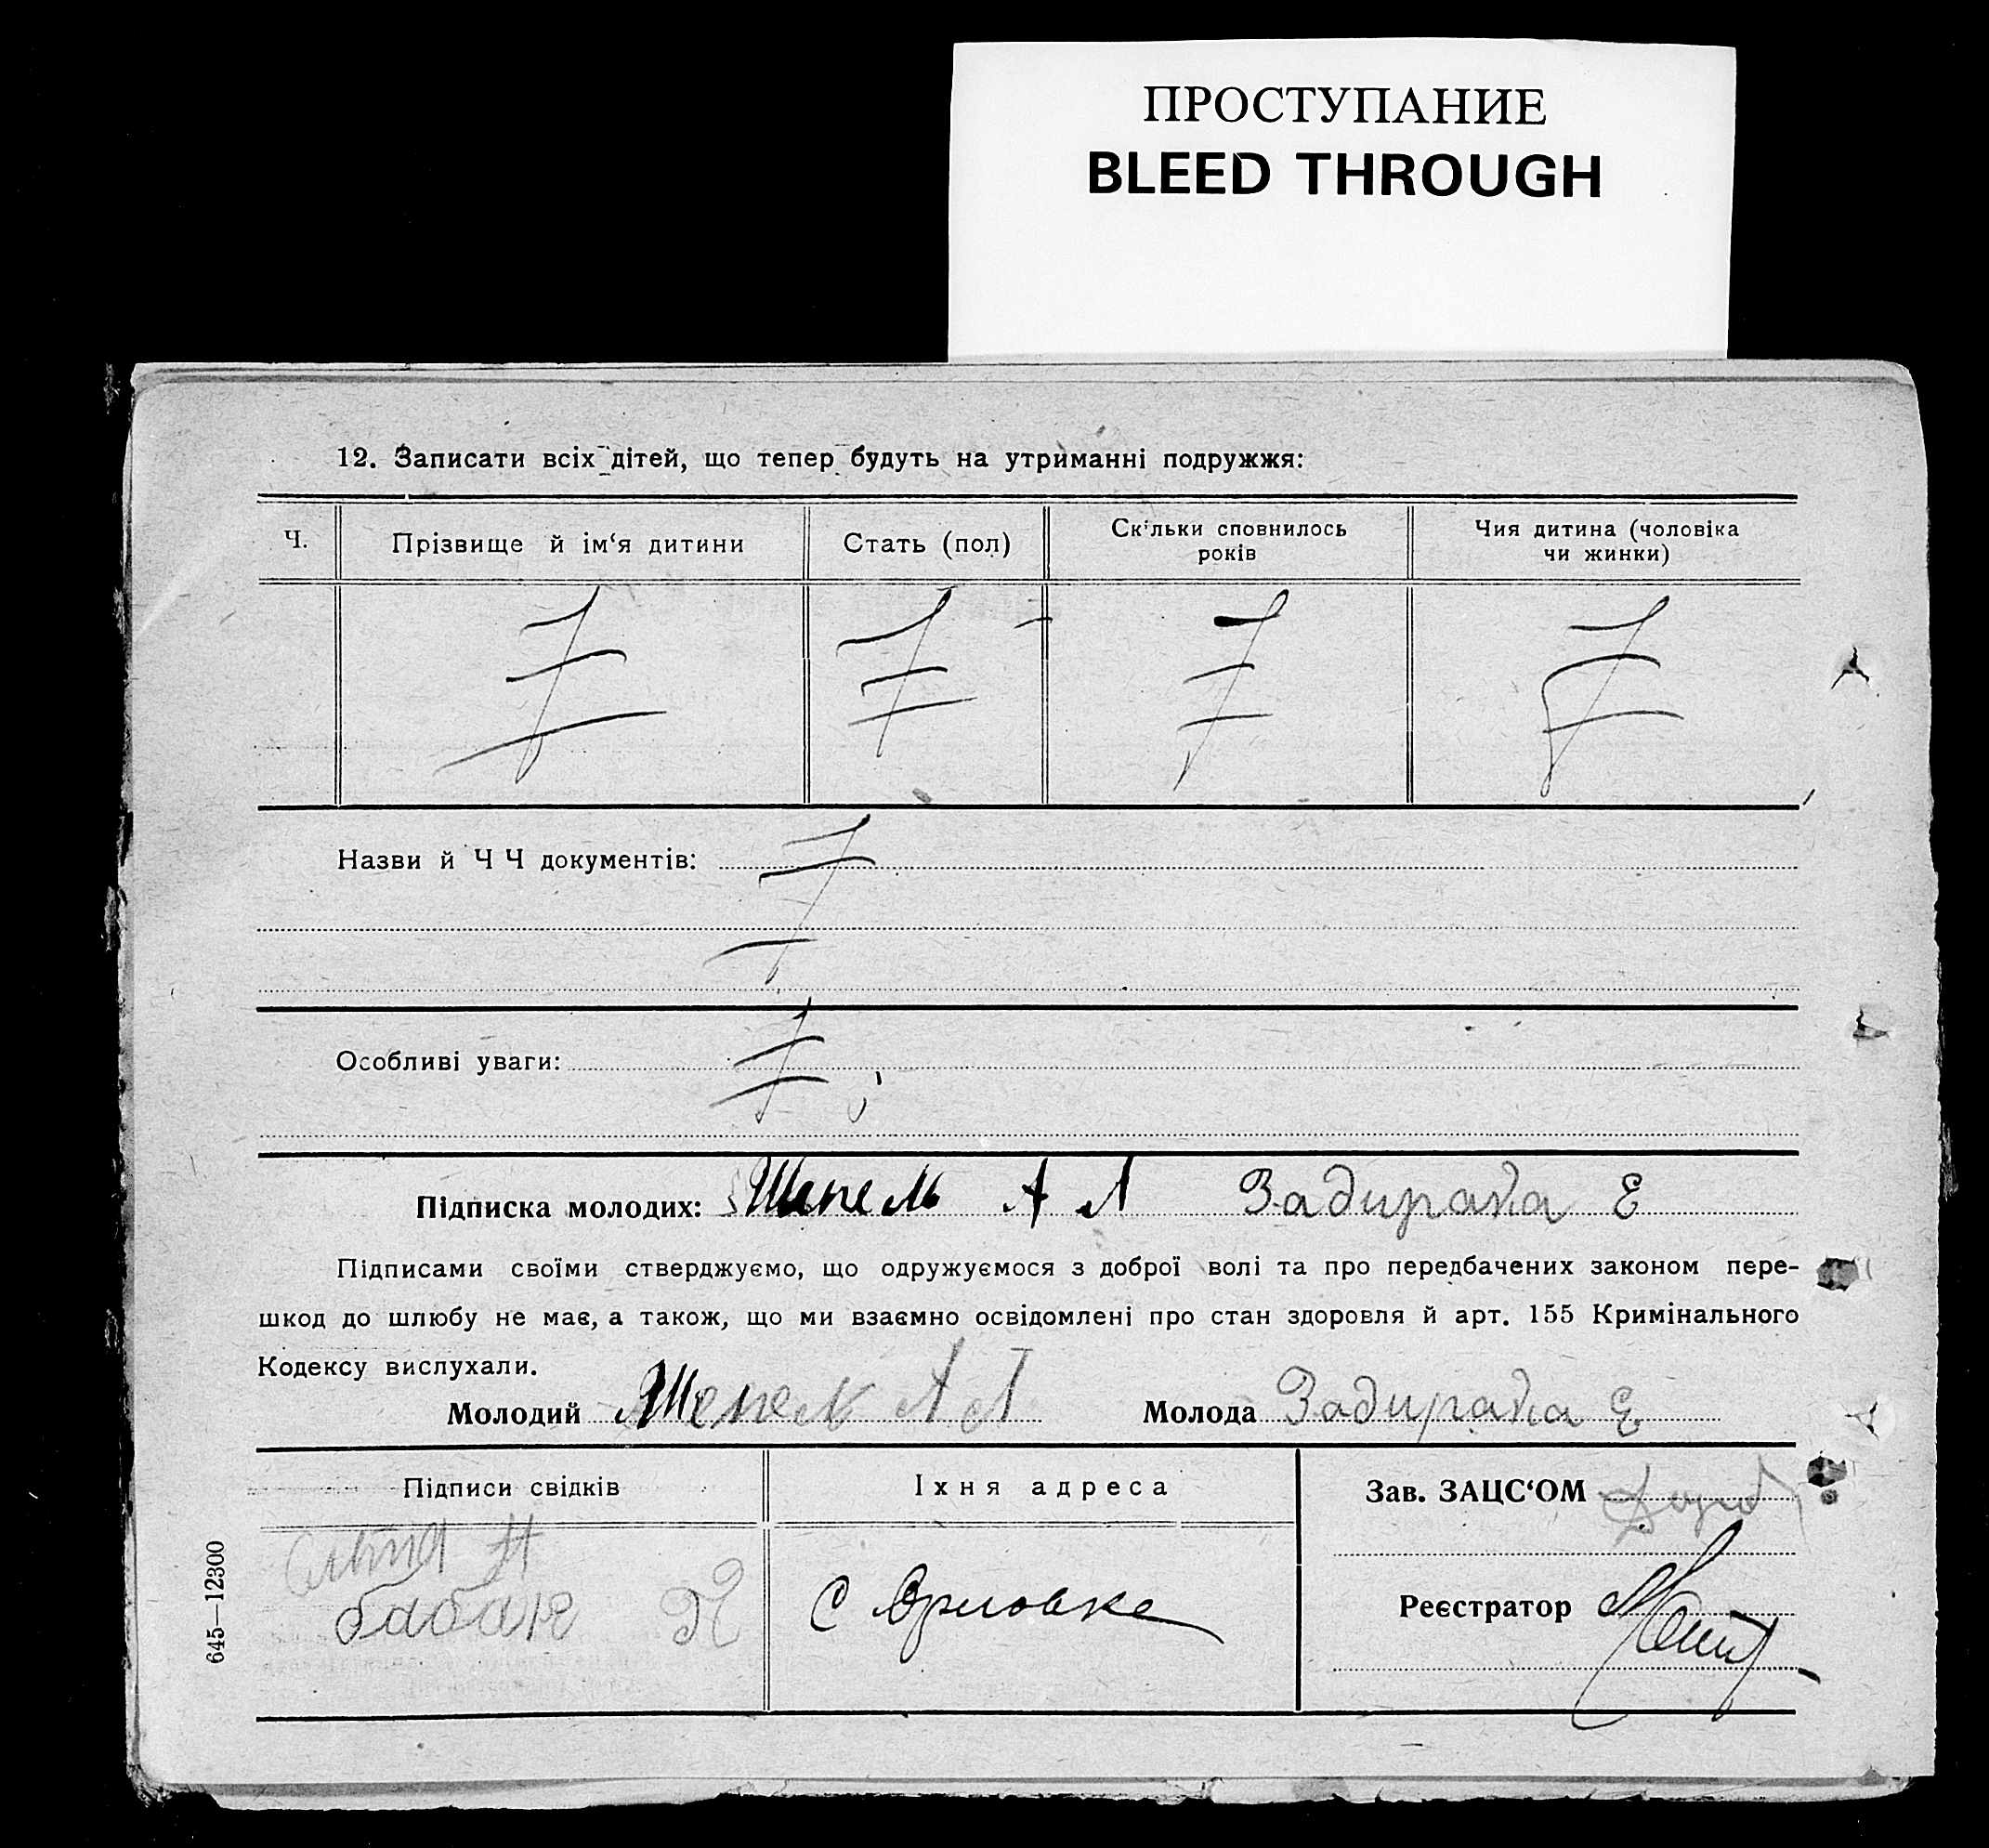 ПРОСТУПАНИЕ
BLEED THROUGH
12. Записати всіх дітей, що тепер будуть на утриманні подружжя:
Ч. Прізвище й ім‘я дитини Стать (пол) Скільки сповнилось років Чия дитина (чоловіка чи жинки)
Назви й Ч Ч документів:
Особливі уваги:
Підписка молодих: Шепель А Л Задирака Е
Підписами своїми стверджуємо, що одружуємося з доброї волі та про передбачених законом пере-
шкод до шлюбу не має, а також, що ми взаємно освідомлені про стан здоровля й арт. 155 Кримінального
Кодексу вислухали.
Молодий Шепель А Л Молода Задирака Е
Підписи свідків Іхня адреса Зав. ЗАЦС‘ОМ
бабак П с Орловка Реєстратор
645—12300